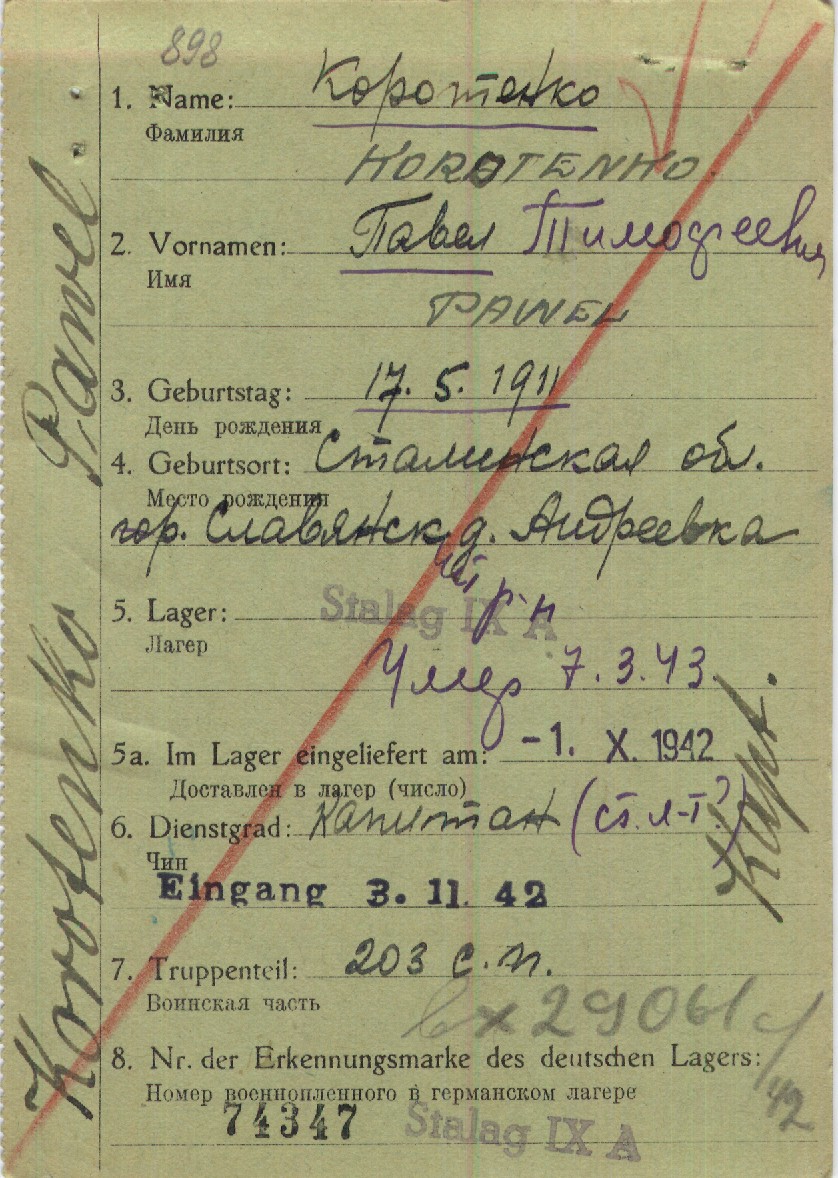 898
1. Name: Коротенко
Фамилия
KOROTENKO.
2. Vornamen: Павел Тимофеевич
Имя
PAWEL
3. Geburtstag: 17. 5. 1911
День рождения
4. Geburtsort: Сталинская обл.
Место рождения
гор. Славянск, д. Андреевка
р-н
5. Lager: Stalag IX A
Лагер
Умер 7.3.43.
5a. Im Lager eingeliefert am: -1. X. 1942
Доставлен в лагер (число)
6. Dienstgrad: Капитан (ст. л-т?)
Чин
Kapt.
Eingang 3. 11. 42
7. Truppenteil: 203 с.п.
Воинская часть
вх 29061 с/42
8. Nr. der Erkennungsmarke des deutschen Lagers:
Номер военнопленного в германском лагере
74347 Stalag IX A
Korotenko Pawel.